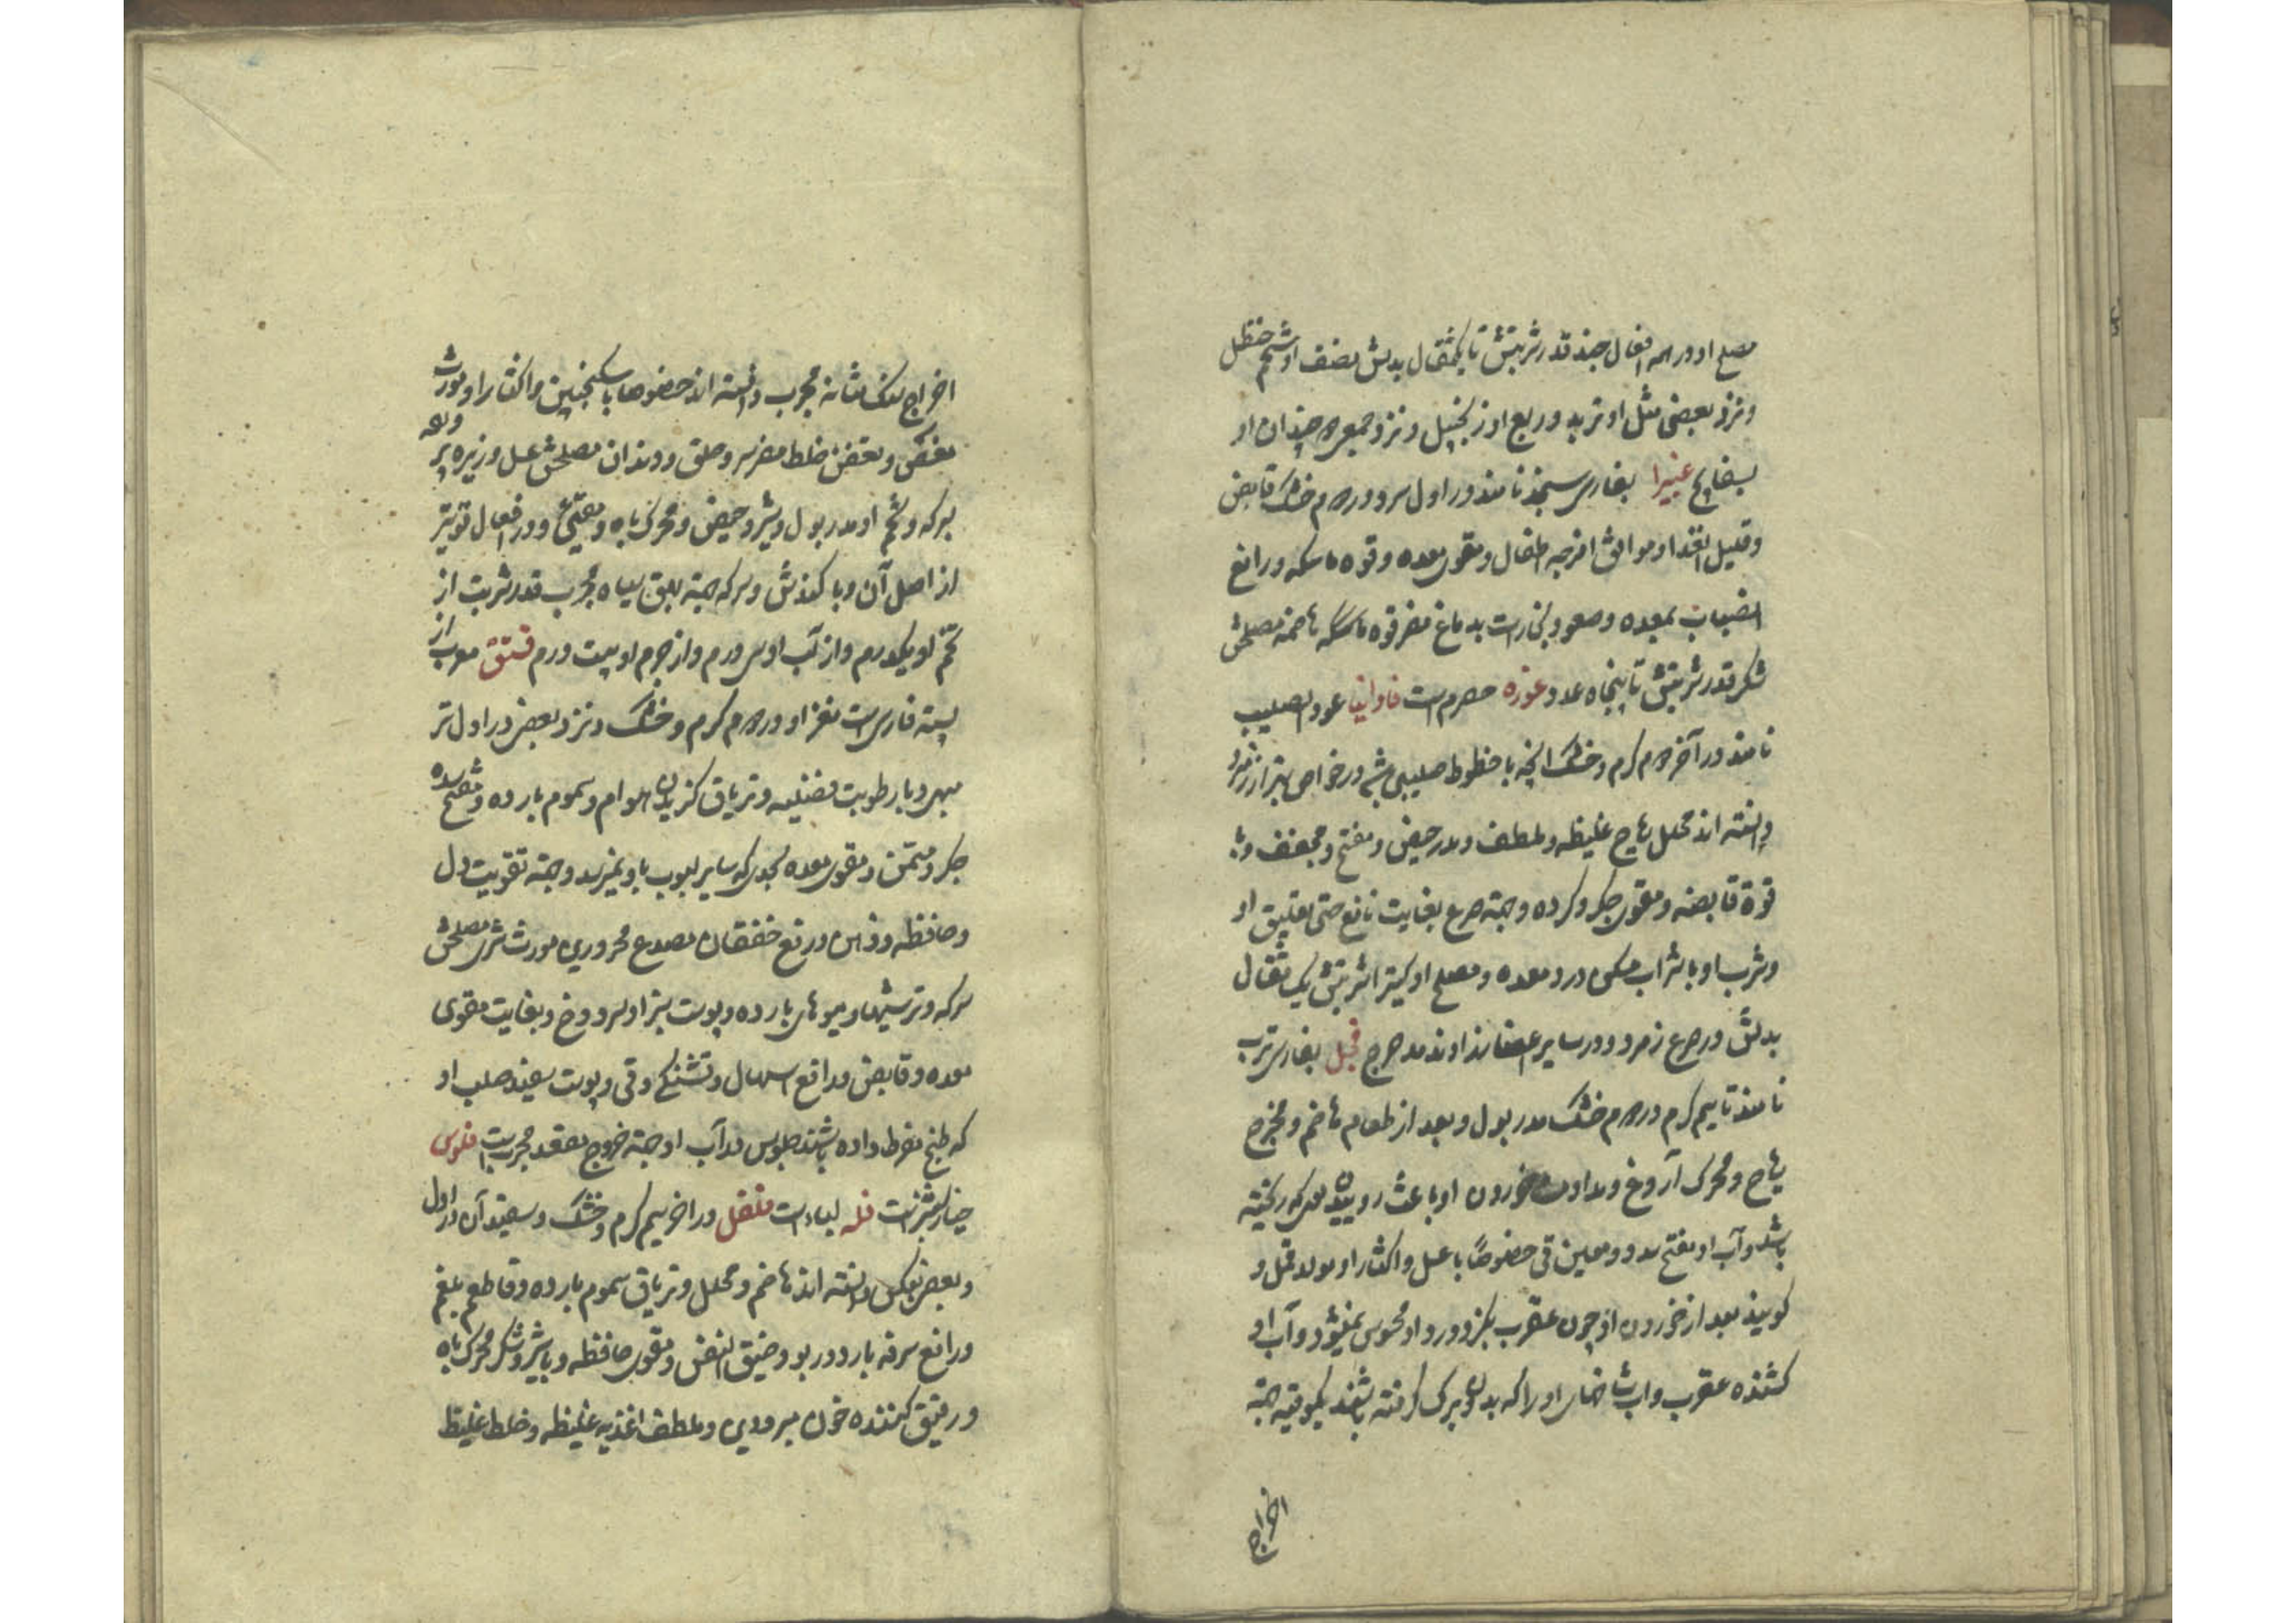 مصلح او در همه افعال چند قدر شربتش تا یکمثقال بدلش نصف او شحم حنظل
و نزد بعضی مثل او تربد و ربع او زنجبیل و نزد جمعی چندان او
بسفایج غبیرا بفارسی سنجد نامند در اول سرد و در دوم خشک قابض
و قلیل الغذا و موافق امزجه اطفال و مقوی معده و قوه ماسکه و رافع
انصباب بمعده و صعود بخارست بدماغ مضر قوه ماسکه هاضمه مصلحش
شکر قدر شربتش تا پنجاه عدد غوزه حصرم است فاوانیا عود الصلیب
نامند در آخر دوم گرم و خشک انچه با خطوط صلیبی باشد در خواص بهتر از زمرد
دانسته اند محلل ریاح غلیظه و ملطف و مدر حیض و مفتح و مجفف و با
قوة قابضه و مقوی جگر و گرده و جهة صرع بغایت نافع حتی تعلیق او
و شرب او با شراب مسکن درد معده و مصلح او کتیرا شربتش یک مثقال
بدلش در صرع زمرد و در سایر افعال زراوند مدحرج فجل بفارسی ترب
نامند تا سیم گرم در دوم خشک مدر بول و بعد از طعام هاضم و مخرج
ریاح و محرک آروغ و مداومت خوردن او باعث روییدن موی که ریخته
باشد و آب او مفتح سدد و معین قی خصوصاً با عسل و اکثار او مولد قمل و
گویند بعد از خوردن او چون عقرب بگزد درد او محسوس نمیشود و آب او
کشنده عقرب و اب شاخهای او را که بدون برگ گرفته باشند یکوقیه جهة
اخراج
اخراج سنک مثانه مجرب دانسته اند خصوصا با سکنجبین و اکثار او مورث
مغص و تعفن خلط مضر سر و حلق و دندان مصلحش عسل و زیره پرورده
بسرکه و تخم او مدر بول و شیر و حیض و محرک باه و مقیئ و در افعال قویتر
از اصل آن و با کندش و سرکه جهة بهق سیاه مجرب قدر شربت از
تخم او یکدرم و از آب او سی درم و از جرم او بیست درم فستق معرب از
پسته فارسی است مغز او در دوم گرم و خشک و نزد بعضی در اول تر
مبهی و با رطوبت فضلیه و تریاق گزیدن هوام و سموم بارده و مفتح سده
جگر و مسمن و مقوی معده بحدی که سایر لبوب باو نمیرسد و جهة تقویت دل
و حافظه و ذهن و رفع خفقان مصدع محرورین مورث شری مصلحش
سرکه و ترشیها و میوهای بارده و پوست سبز او سرد و خ و بغایت مقوی
معده و قابض و دافع اسهال و تشنگی و قی و پوست سفید صلب او
که طبخ مفرط داده باشند جلوس در آب او جهة خروج مقعد مجربست فلوس
خیار شنبر است فله لباء است فلفل در اخر سیم گرم و خشک و سفید آن در اول
و بعضی بعکس دانسته اند هاضم و محلل و تریاق سموم بارده و قاطع بلغم
و رافع سرفه بارد و ربو و ضیق النفس و مقوی حافظه و با شیر و شکر محرک باه
و رقیق کننده خون مبرودین و ملطف اغذیه غلیظه و خلط غلیظ